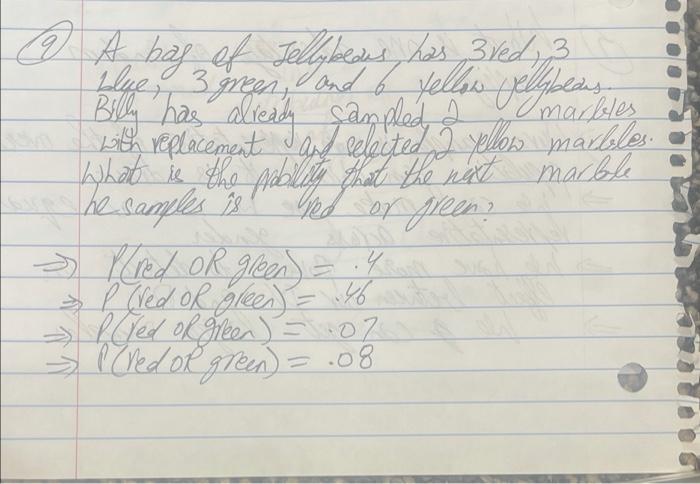 9 A bag of Jellybeans has 3 red, 3
blue, 3 green, and 6 yellow jellybeans.
Billy has already sampled 2 marbles
with replacement and selected 2 yellow marbles.
What is the pobility that the next marble
he samples is red or green?
⇒ P(red OR green) = .4
⇒ P(red OR green) = .46
⇒ P(red OR green) = .07
⇒ P(red OR green) = .08